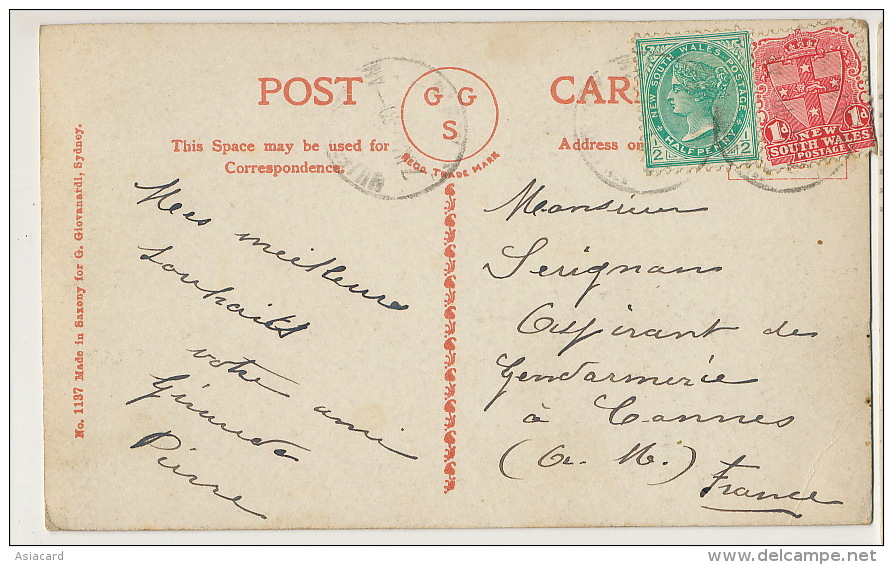 POST CAR
G G
S
REGD. TRADE MARK
This Space may be used for
Correspondence.
Address on
NEW SOUTH WALES POSTAGE
1/2 1/2
HALFPENNY
1d 1d
NEW
SOUTH WALES
POSTAGE
No. 1137 Made in Saxony for G. Giovanardi, Sydney.
Mes meilleurs
souhaits
votre ami
Pierre
Monsieur
Serignan
Aspirant de
Gendarmerie
à Cannes
(A. M.)
France
Asiacard
www.delcampe.net